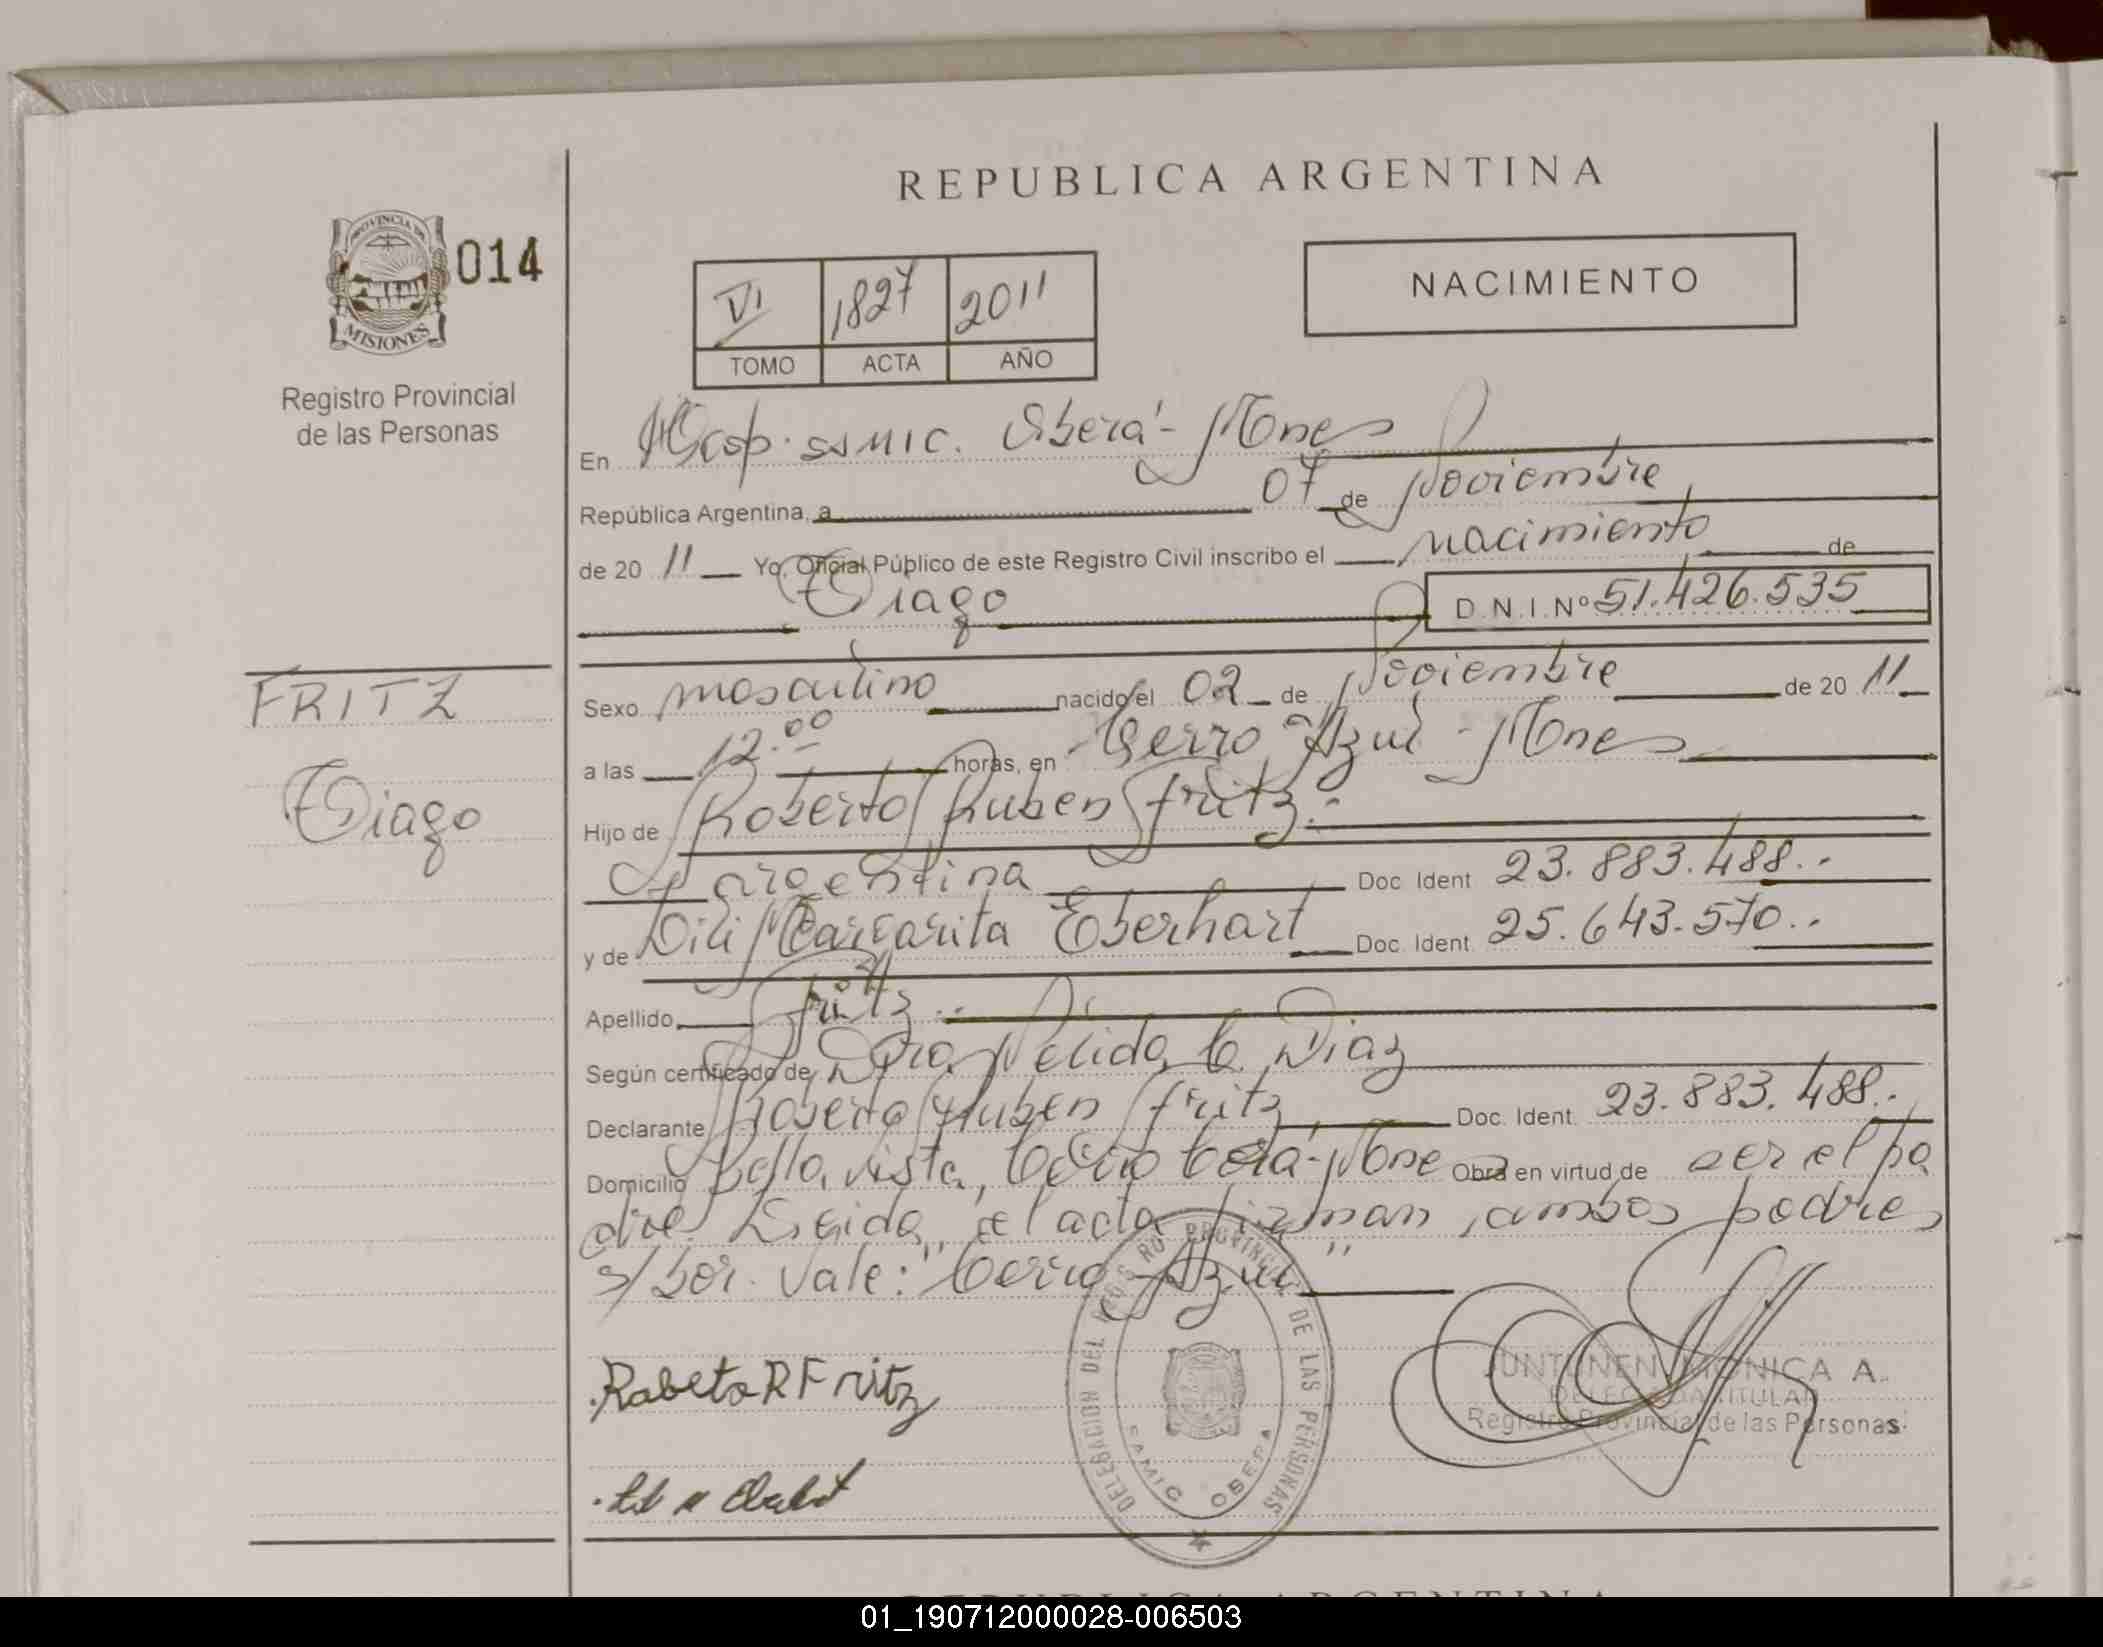 REPUBLICA ARGENTINA
PROVINCIA DE
MISIONES
014
Registro Provincial
de las Personas
VI 1827 2011
TOMO ACTA AÑO
NACIMIENTO
En Hosp. SAMIC. Oberá - Mnes
República Argentina, a 07 de Noviembre
de 20 11 Yo, Oficial Público de este Registro Civil inscribo el nacimiento de
Tiago D.N.I. Nº 51.426.535
FRITZ
Tiago
Sexo masculino nacido el 02 de Noviembre de 20 11
a las 12.00 horas, en Cerro Azul - Mnes
Hijo de Roberto Ruben Fritz.-
Argentina Doc. Ident. 23.883.488.-
y de Lili Margarita Eberhart Doc. Ident. 25.643.570.-
Apellido Fritz.-
Según certificado de Dra. Nélida C. Diaz
Declarante Roberto Ruben Fritz Doc. Ident. 23.883.488.-
Domicilio Bella vista, Cerro Corá - Mne Obra en virtud de ser el pa
dre. Leida el acta firman ambos padres
s/bor. Vale: "Cerro Azul"
DELEGACION DEL REGISTRO PROVINCIAL DE LAS PERSONAS
SAMIC OBERA
Robeto R Fritz
JUNTUNEN MONICA A.
DELEGADA TITULAR
Registro Provincial de las Personas
REPUBLICA ARGENTINA
01_190712000028-006503